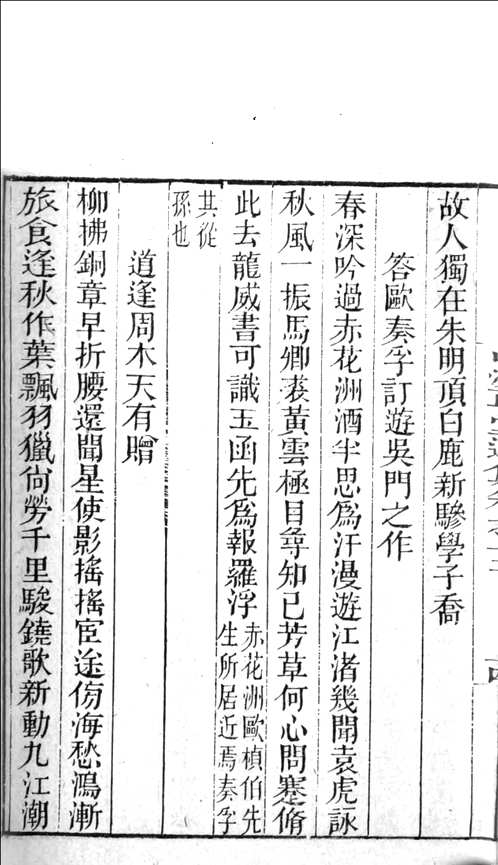 故人獨在朱明頂白鹿新驂學子喬
答歐奏孚訂遊吳門之作
春深吟過赤花洲酒半思爲汗漫遊江渚幾聞袁虎詠
秋風一振馬卿裘黃雲極目尋知已芳草何心問蹇脩
此去龍威書可識玉函先爲報羅浮赤花洲歐楨伯先
生所居近焉奏孚
其從
孫也
道逢周木天有贈
柳拂銅章早折腰還聞星使影搖搖宦途傍海愁鴻漸
旅食逢秋作葉飄羽獵尙勞千里駿鐃歌新動九江潮